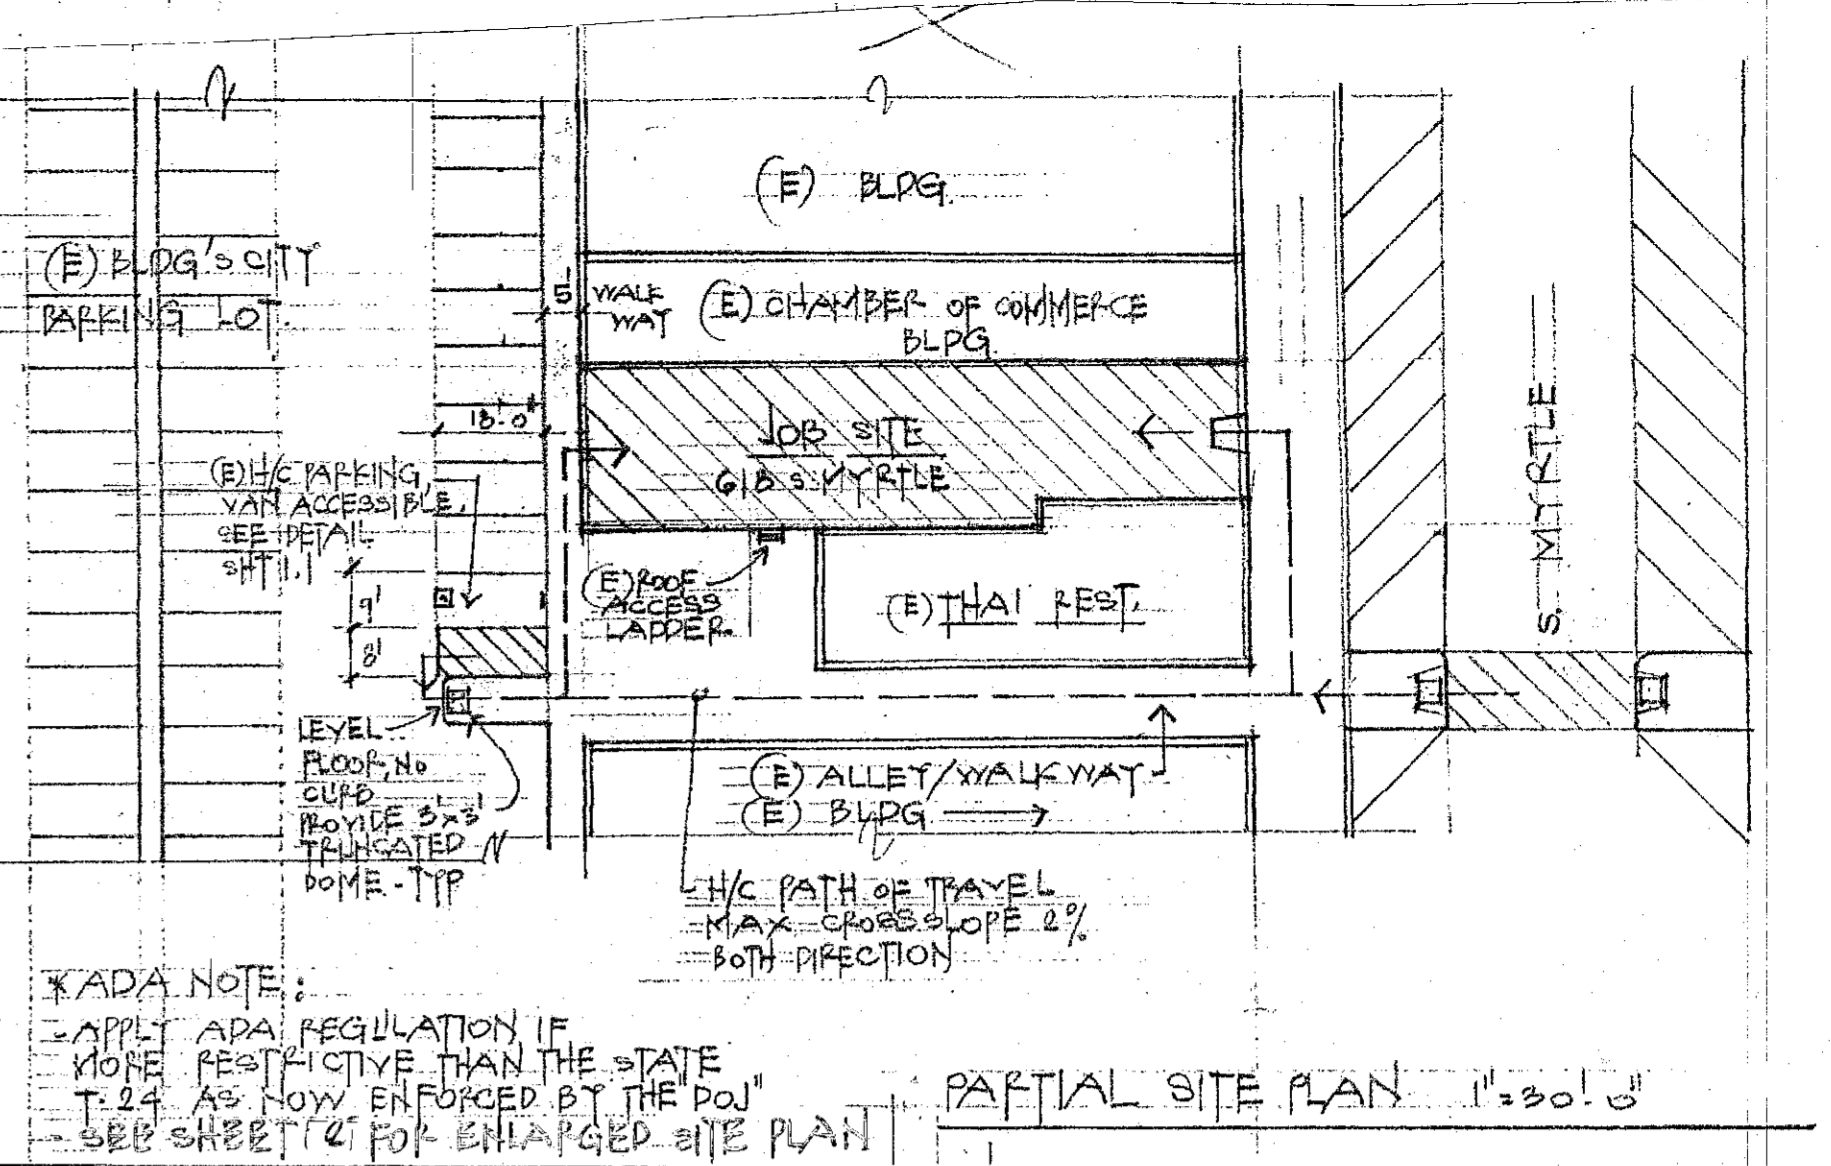 (E) BLDG.
(E) BLDG'S CITY
PARKING LOT.
5'
WALK
WAY
(E) CHAMBER OF COMMERCE
BLDG.
18'-0"
JOB SITE
618 S. MYRTLE
(E) H/C PARKING,
VAN ACCESSIBLE,
SEE DETAIL
SHT 1.1
9'
8'
(E) ROOF
ACCESS
LADDER.
(E) THAI REST.
S. MYRTLE
LEVEL
FLOOR, NO
CURB
PROVIDE 3'x3'
TRUNCATED
DOME - TYP
(E) ALLEY/WALKWAY
(E) BLDG
H/C PATH OF TRAVEL
MAX CROSS SLOPE 2%
BOTH DIRECTION
* ADA NOTE:
- APPLY ADA REGULATION IF
MORE RESTRICTIVE THAN THE STATE
T-24 AS NOW ENFORCED BY THE "DOJ"
- SEE SHEET FOR ENLARGED SITE PLAN
PARTIAL SITE PLAN 1"=30'-0"